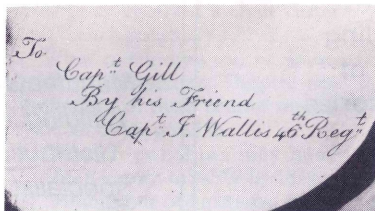 To
Capt. Gill
By his Friend
Capt. J. Wallis 46th Regt.